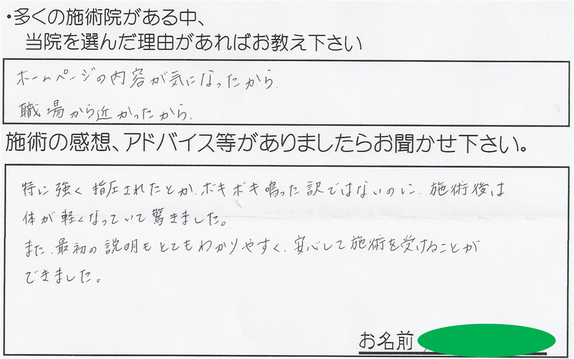 ・多くの施術院がある中、
当院を選んだ理由があればお教え下さい
ホームページの内容が気になったから
職場から近かったから
施術の感想、アドバイス等がありましたらお聞かせ下さい。
特に強く指圧されたとか、ボキボキ鳴った訳ではないのに、施術後は
体が軽くなっていて驚きました。
また、最初の説明もとてもわかりやすく、安心して施術を受けることが
できました。
お名前